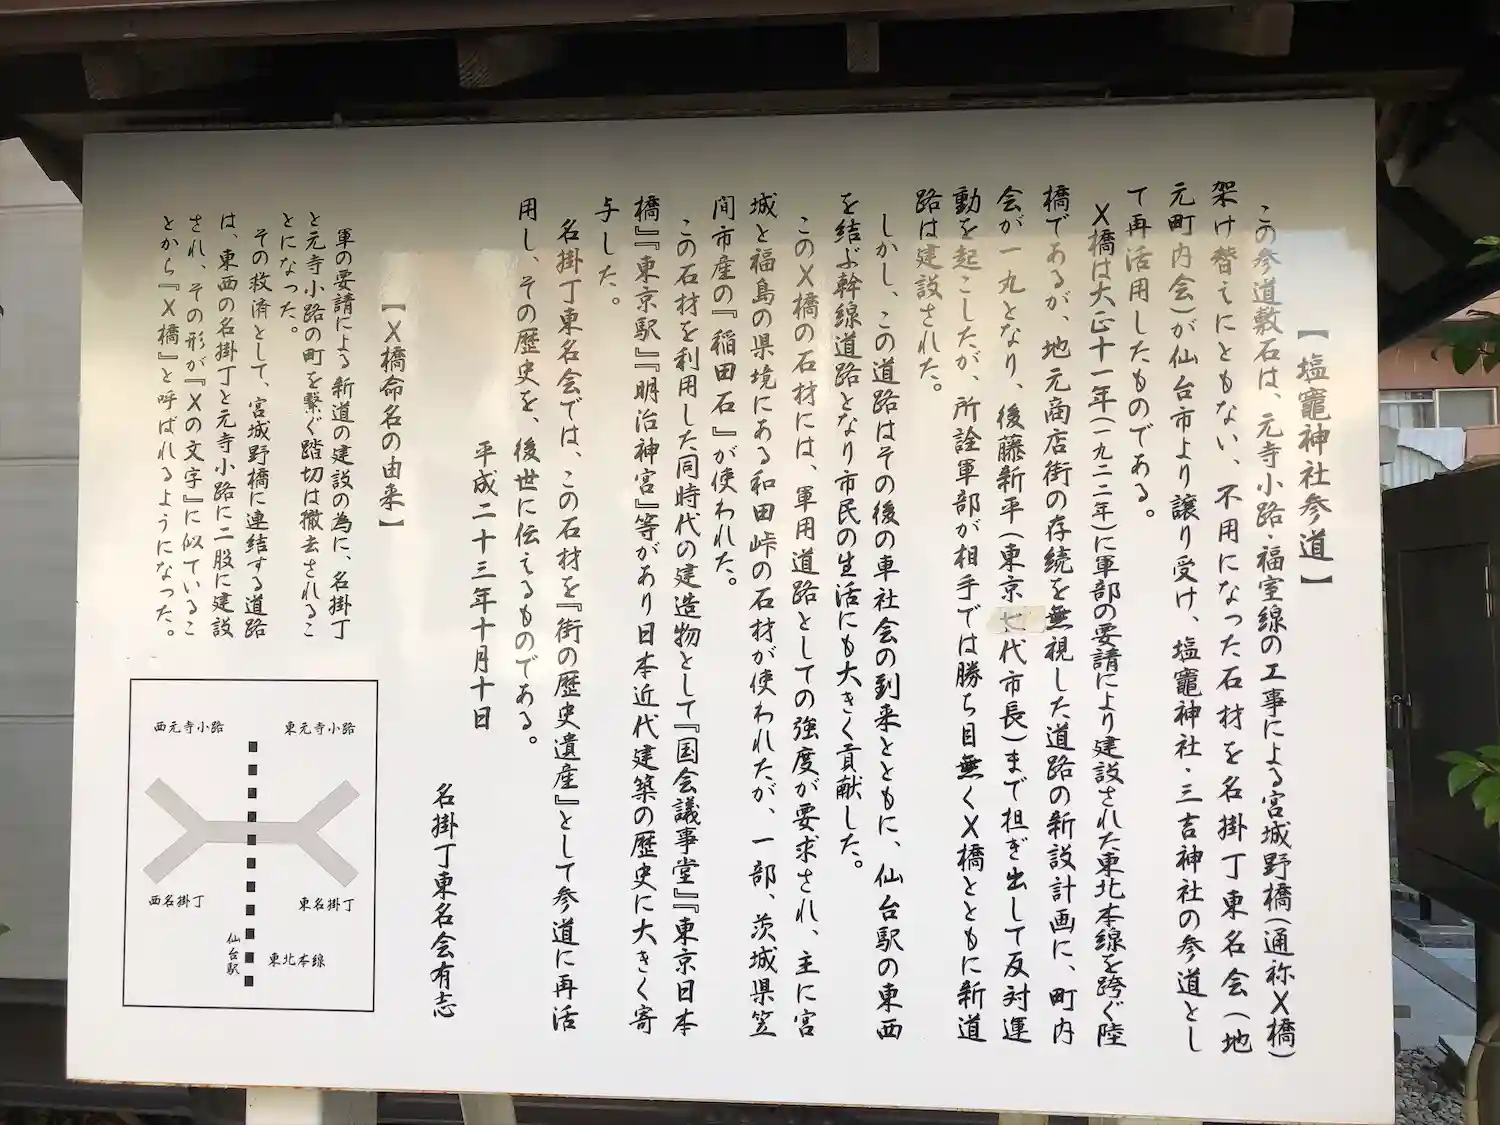 【塩竈神社参道】
この参道敷石は、元寺小路・福室線の工事による宮城野橋(通称X橋)
架け替えにともない、不用になった石材を名掛丁東名会(地
元町内会)が仙台市より譲り受け、塩竈神社・三吉神社の参道とし
て再活用したものである。
X橋は大正十一年(一九二二年)に軍部の要請により建設された東北本線を跨ぐ陸
橋であるが、地元商店街の存続を無視した道路の新設計画に、町内
会が一丸となり、後藤新平(東京七代市長)まで担ぎ出して反対運
動を起こしたが、所詮軍部が相手では勝ち目無くX橋とともに新道
路は建設された。
しかし、この道路はその後の車社会の到来とともに、仙台駅の東西
を結ぶ幹線道路となり市民の生活にも大きく貢献した。
このX橋の石材には、軍用道路としての強度が要求され、主に宮
城と福島の県境にある和田峠の石材が使われたが、一部、茨城県笠
間市産の『稲田石』が使われた。
この石材を利用した同時代の建造物として『国会議事堂』『東京日本
橋』『東京駅』『明治神宮』等があり日本近代建築の歴史に大きく寄
与した。
名掛丁東名会では、この石材を『街の歴史遺産』として参道に再活
用し、その歴史を、後世に伝えるものである。
平成二十三年十月十日
名掛丁東名会有志
【X橋命名の由来】
軍の要請による新道の建設の為に、名掛丁
と元寺小路の町を繋ぐ踏切は撤去されるこ
とになった。
その救済として、宮城野橋に連結する道路
は、東西の名掛丁と元寺小路に二股に建設
され、その形が『Xの文字』に似ているこ
とから『X橋』と呼ばれるようになった。
東元寺小路
西元寺小路
東名掛丁
西名掛丁
東北本線
仙台駅